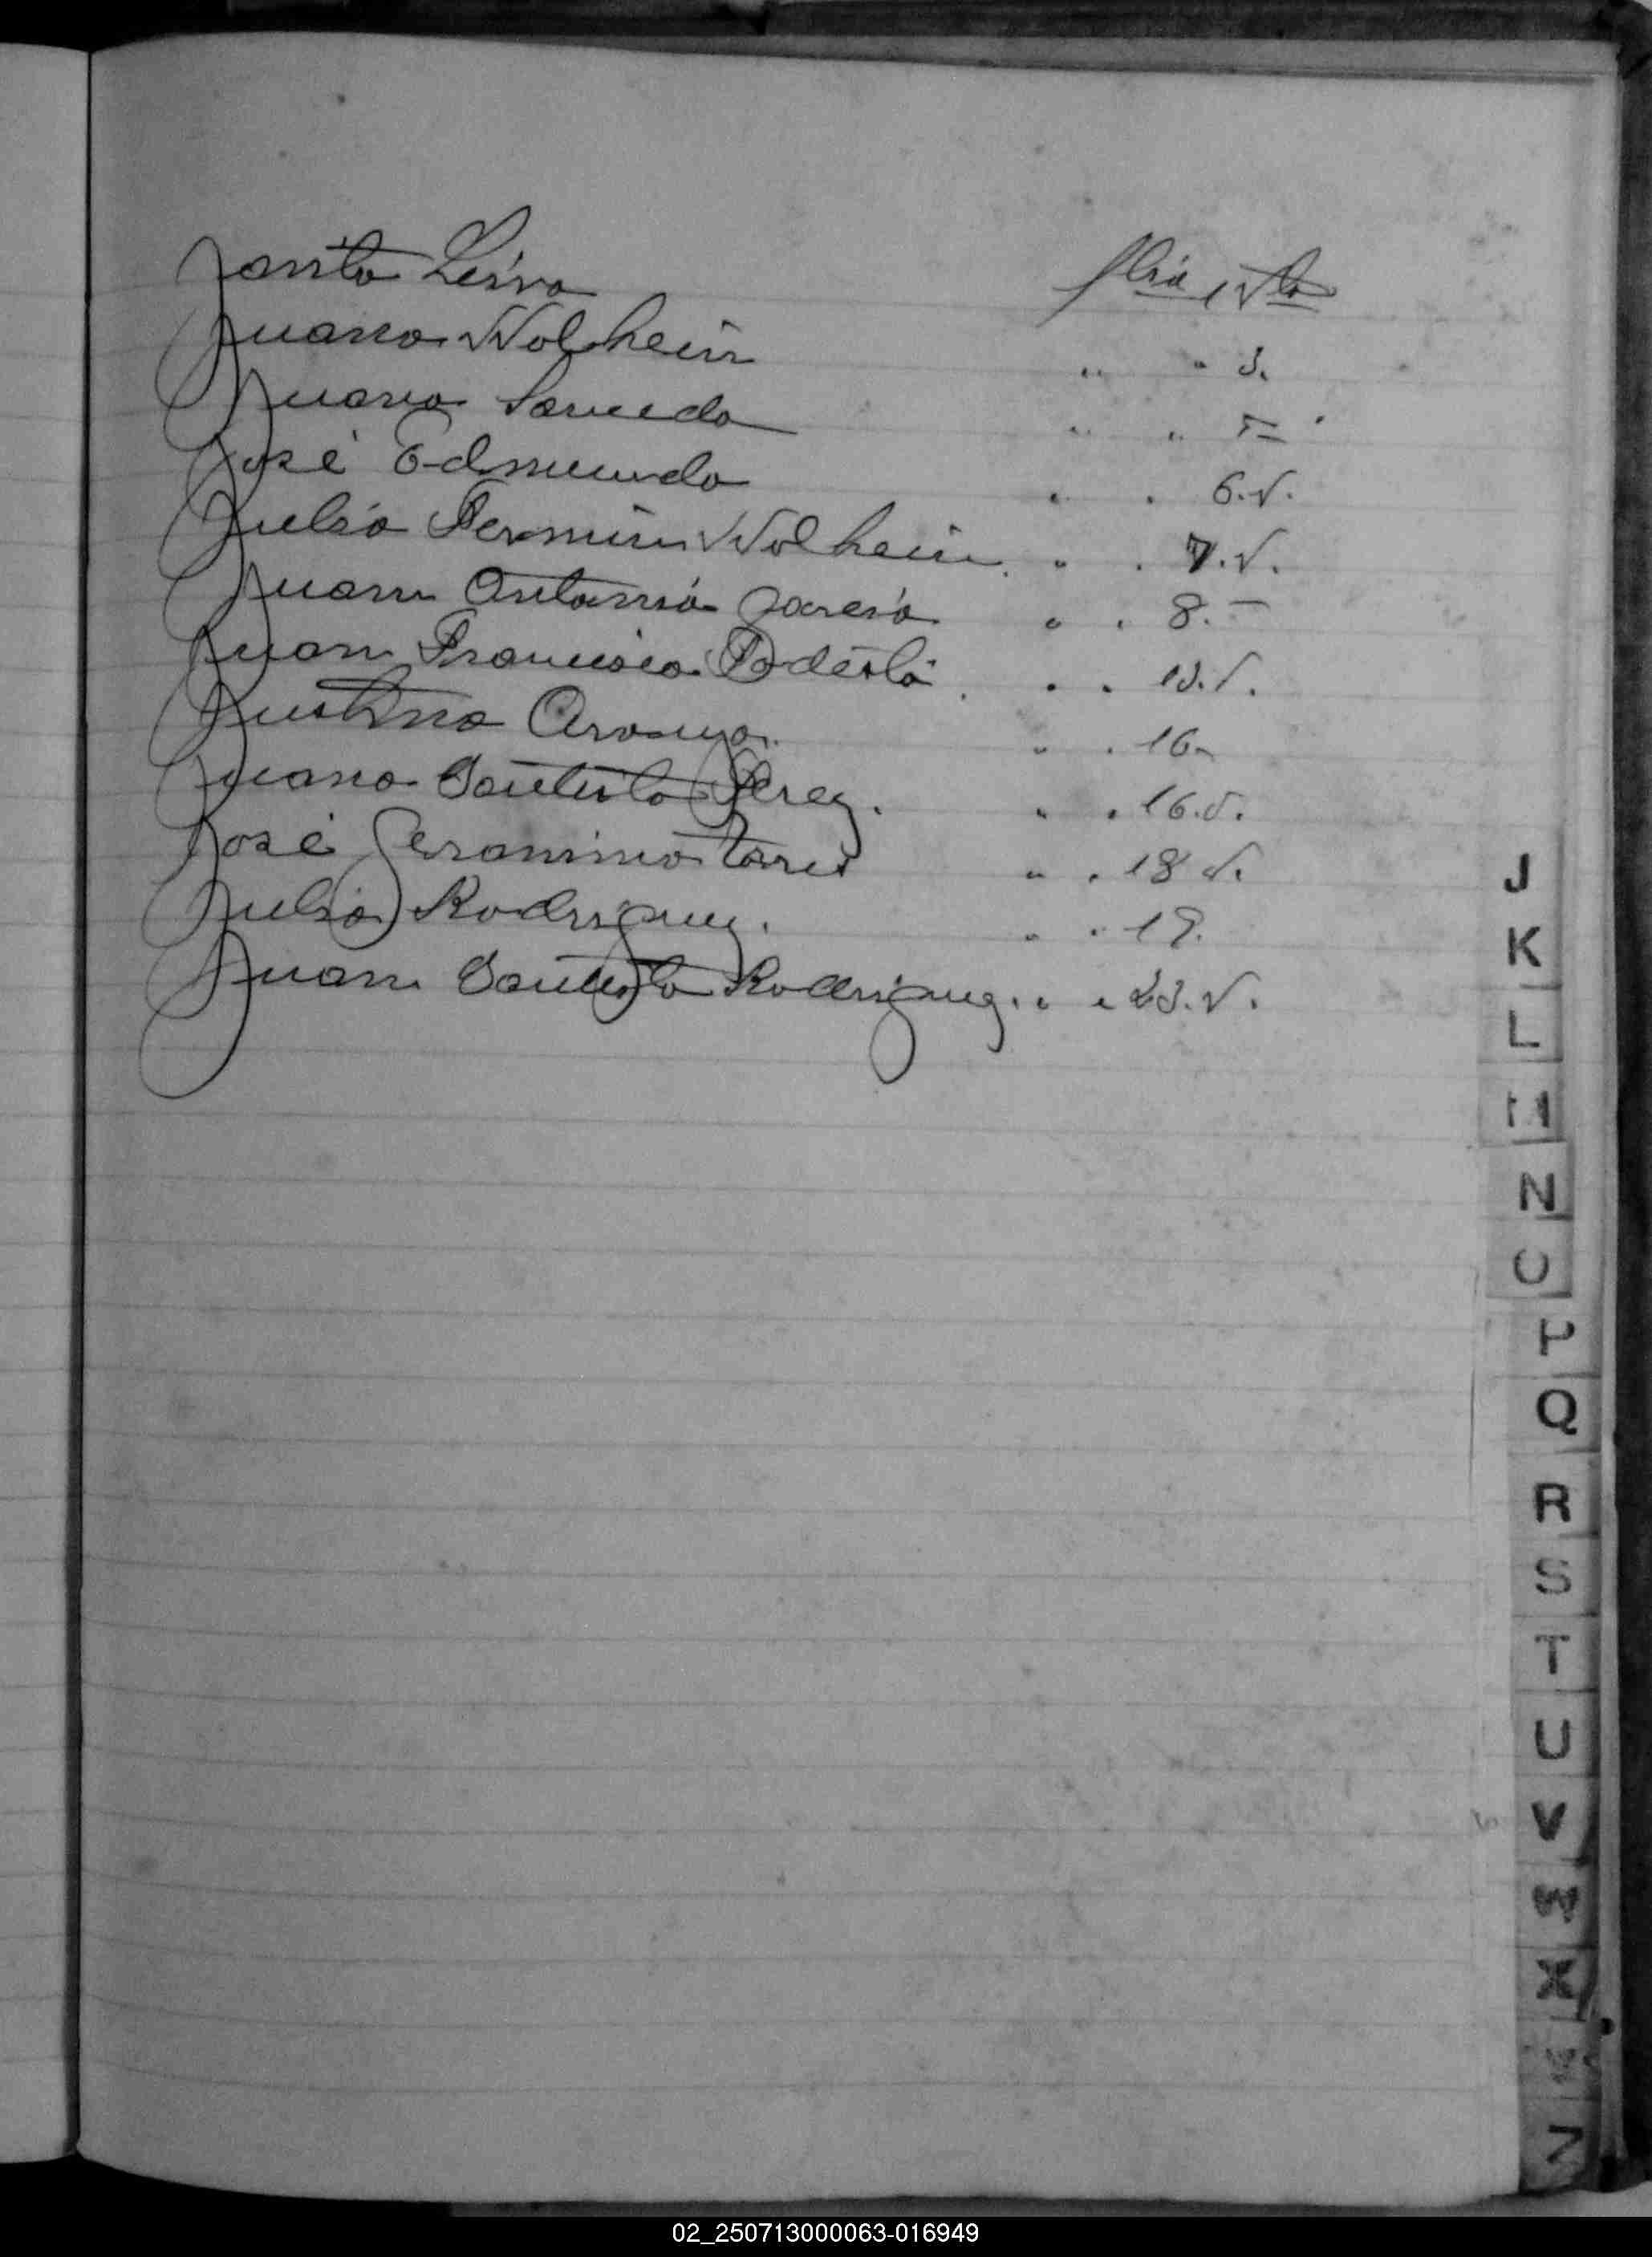 Janito Leiva flia 1 vta
Juana Wolhein " " 3.
Juana Saucedo " " 5-
José Edmundo " " 6.v.
Julio Fermin Wolhein. " " 7.v.
Juan Antonio Garcia " " 8.-
Juan Francisco Podestá. " " 13.v.
Justina Araujo. " " 16-
Juana Bautista Perez. " " 16.v.
José Geronimo Torres " " 18 v.
Julio Rodriguez. " " 19.
Juan Bautista Rodriguez. " " 23.v.
J
K
L
M
N
O
P
Q
R
S
T
U
V
W
X
Y
Z
02_250713000063-016949